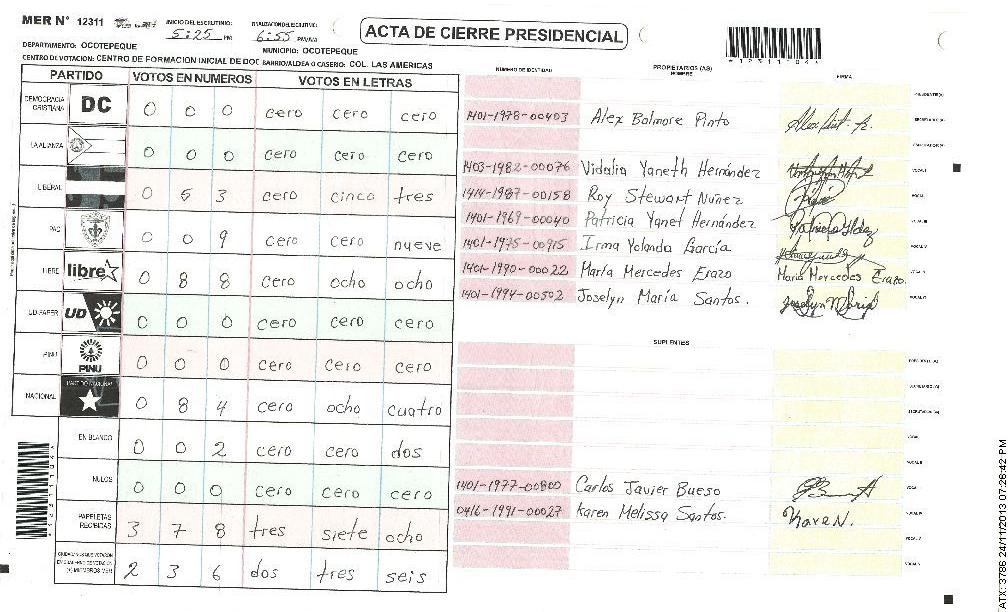 MER N° 12311
INICIO DEL ESCRUTINIO:
5:25 PM
FINALIZACION DEL ESCRUTINIO:
6:55 PM/AM
ACTA DE CIERRE PRESIDENCIAL
DEPARTAMENTO: OCOTEPEQUE
MUNICIPIO: OCOTEPEQUE
CENTRO DE VOTACION: CENTRO DE FORMACION INICIAL DE DOC BARRIO/ALDEA O CASERIO: COL. LAS AMERICAS
PARTIDO VOTOS EN NUMEROS VOTOS EN LETRAS
DEMOCRACIA CRISTIANA DC 0 0 0 cero cero cero
LA ALIANZA 0 0 0 cero cero cero
LIBERAL 0 5 3 cero cinco tres
PAC 0 0 9 cero cero nueve
LIBRE libre 0 8 8 cero ocho ocho
UD-FAPER UD 0 0 0 cero cero cero
PINU PINU 0 0 0 cero cero cero
NACIONAL PARTIDO NACIONAL 0 8 4 cero ocho cuatro
EN BLANCO 0 0 2 cero cero dos
NULOS 0 0 0 cero cero cero
PAPELETAS RECIBIDAS 3 7 8 tres siete ocho
2 3 6 dos tres seis
NUMERO DE IDENTIDAD PROPIETARIOS (AS) NOMBRE FIRMA
1401-1978-00403 Alex Balmore Pinto
1403-1982-00076 Vidalia Yaneth Hernández
1414-1987-00158 Roy Stewart Núñez
1401-1969-00040 Patricia Yanet Hernández
1401-1975-00915 Irma Yolanda García
1401-1990-00022 María Mercedes Erazo Maria Mercedes Erazo.
1401-1994-00502 Joselyn María Santos.
SUPLENTES
1401-1977-00800 Carlos Javier Bueso
0416-1991-00027 Karen Melissa Santos. Karen.
ATX: 3786 24/11/2013 07:26:42 PM